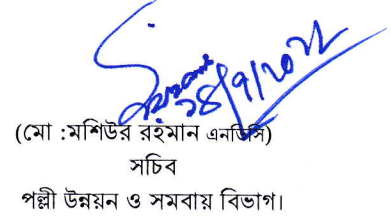 (মো :মশিউর রহমান এনডিসি)
সচিব
পল্লী উন্নয়ন ও সমবায় বিভাগ।